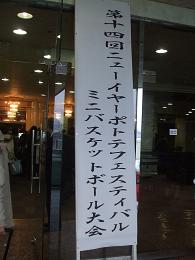 第十四回ニューイヤーポテトフェスティバル
ミニバスケットボール大会